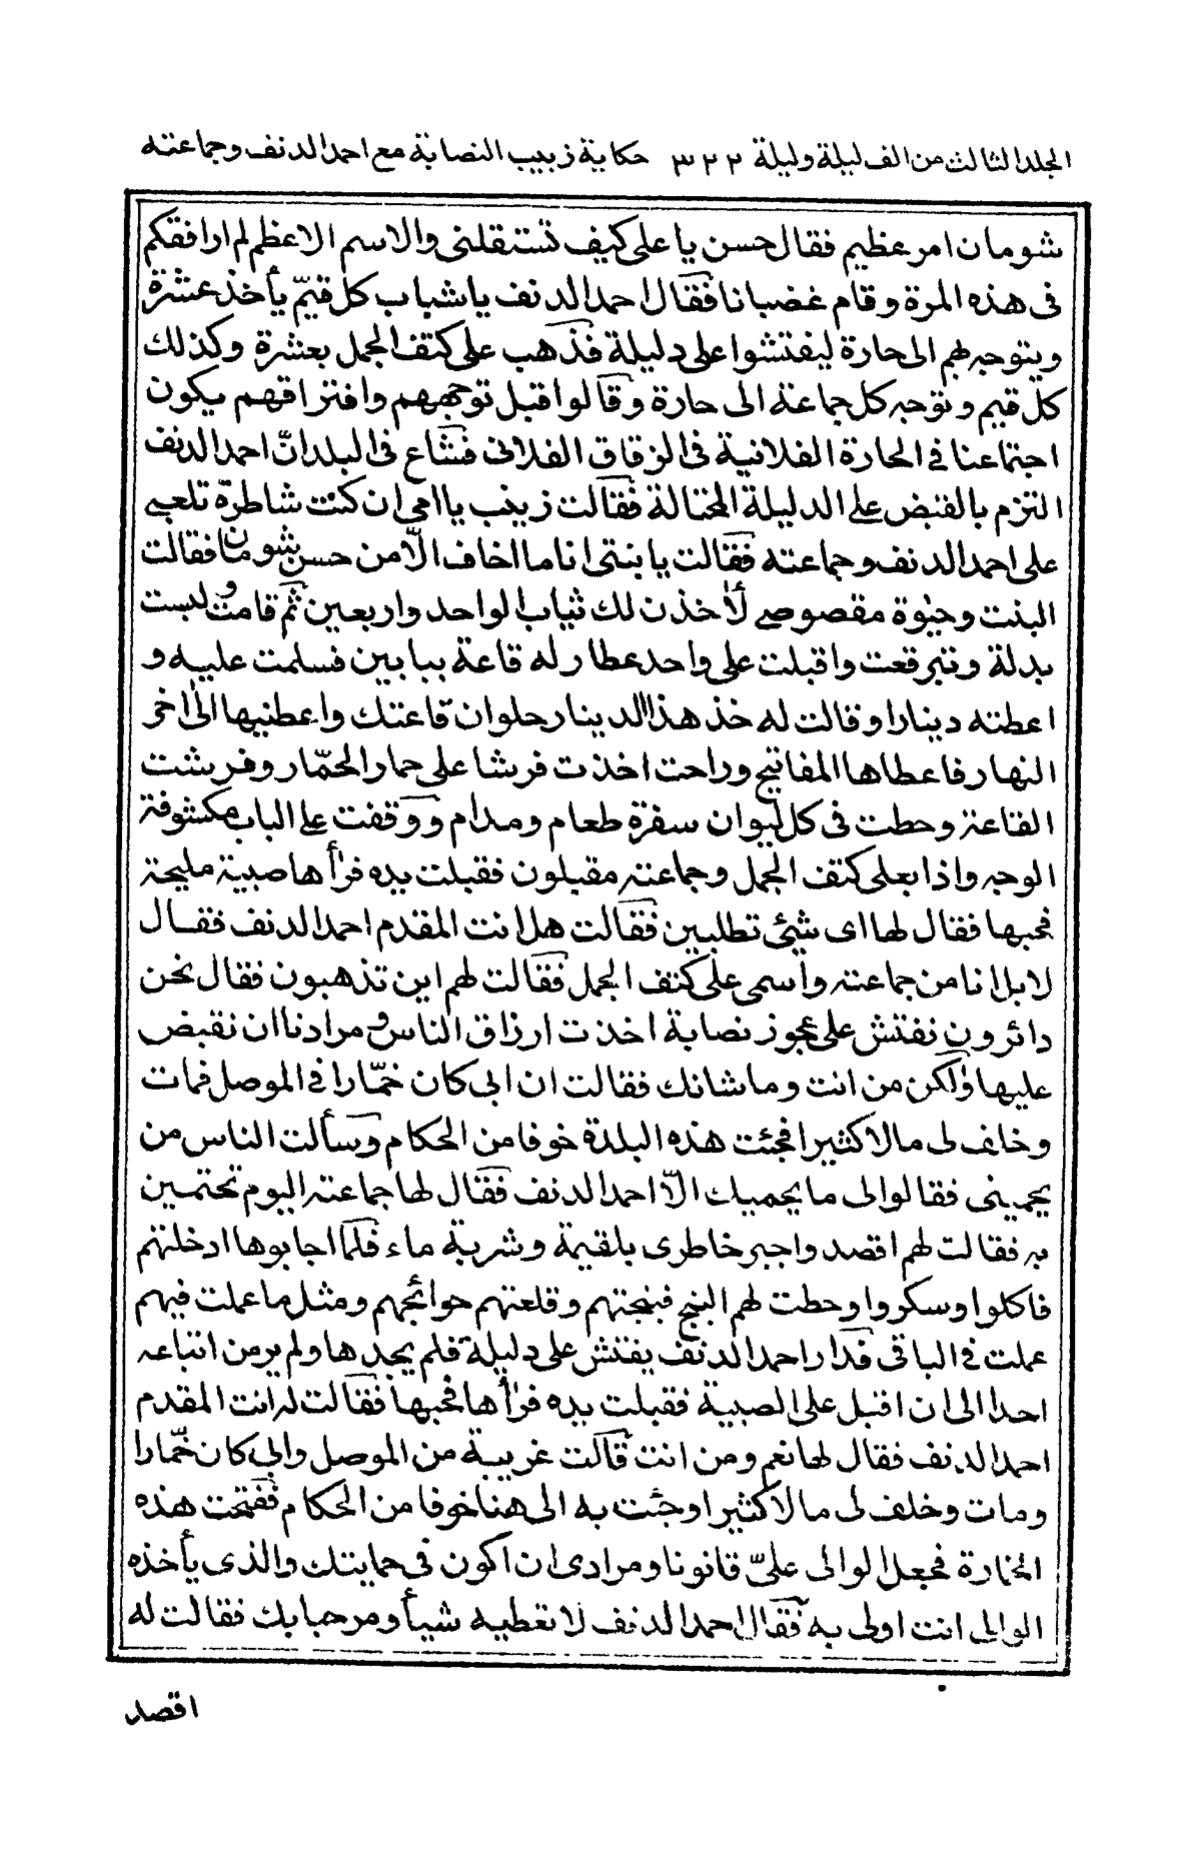 المجلد الثالث من الف ليلة وليلة ٣٢٢ حكاية زينب النصابة مع احمد الدنف وجماعته
شومان امر عظيم فقال حسن يا على كيف تستقلنى والاسم الاعظم لم ارافقكم
فى هذه المرة وقام غضبانا فقال احمد الدنف يا شباب كل قيّم يأخذ عشرة
ويتوجه بهم الى حارة ليفتشوا على دليلة فذهب على كتف الجمل بعشرة وكذلك
كل قيم وتوجه كل جماعة الى حارة وقالوا قبل توجههم وافتراقهم يكون
اجتماعنا فى الحارة الفلانية فى الزقاق الفلانى فشاع فى البلد انّ احمد الدنف
التزم بالقبض على الدليلة المحتالة فقالت زينب يا امى ان كنت شاطرة تلعبى
على احمد الدنف وجماعته فقالت يا بنتى انا ما اخاف الّا من حسن شومان فقالت
البنت وحيٰوة مقصوصى لأخذن لك ثياب الواحد واربعين ثم قامت ولبست
بدلة وتبرقعت واقبلت على واحد عطار له قاعة ببابين فسلمت عليه و
اعطته دينارا وقالت له خذ هذا الدينار حلوان قاعتك واعطنيها الى اٰخر
النهار فاعطاها المفاتيح وراحت اخذت فرشا على حمار الحمّار وفرشت
القاعة وحطت فى كل ليوان سفرة طعام ومدام ووقفت على الباب مكشوفة
الوجه واذا بعلى كتف الجمل وجماعته مقبلون فقبلت يده فرأها صبية مليحة
فحبها فقال لها اى شيئى تطلبين فقالت هل انت المقدم احمد الدنف فقال
لا بل انا من جماعته واسمى على كتف الجمل فقالت لهم اين تذهبون فقال نحن
دائرون نفتش على عجوز نصابة اخذت ارزاق الناس ومرادنا ان نقبض
عليها ولٰكن من انت وما شانك فقالت ان ابى كان خمّارا فى الموصل فمات
وخلف لى مالا كثيرا فجئت هذه البلدة خوفا من الحكام وسألت الناس من
يحمينى فقالوا لى ما يحميك الّا احمد الدنف فقال لها جماعته اليوم تحتمين
به فقالت لهم اقصدوا جبر خاطرى بلقيمة وشربة ماء فلما اجابوها ادخلتهم
فاكلوا وسكروا وحطت لهم البنج فبنجتهم وقلعتهم حوائجهم ومثل ما عملت فيهم
عملت فى الباقى فدار احمد الدنف يفتش على دليلة فلم يجدها ولم ير من اتباعه
احدا الى ان اقبل على الصبية فقبلت يده فرأها فحبها فقالت له انت المقدم
احمد الدنف فقال لها نعم ومن انت قالت غريبة من الموصل وابى كان خمّارا
ومات وخلف لى مالا كثيرا وجئت به الى هنا خوفا من الحكام ففتحت هذه
الخمارة فجعل الوالى علىّ قانونا ومرادى ان اكون فى حمايتك والذى يأخذه
الوالى انت اولى به فقال احمد الدنف لا تعطيه شيأ ومرحبا بك فقالت له
اقصد